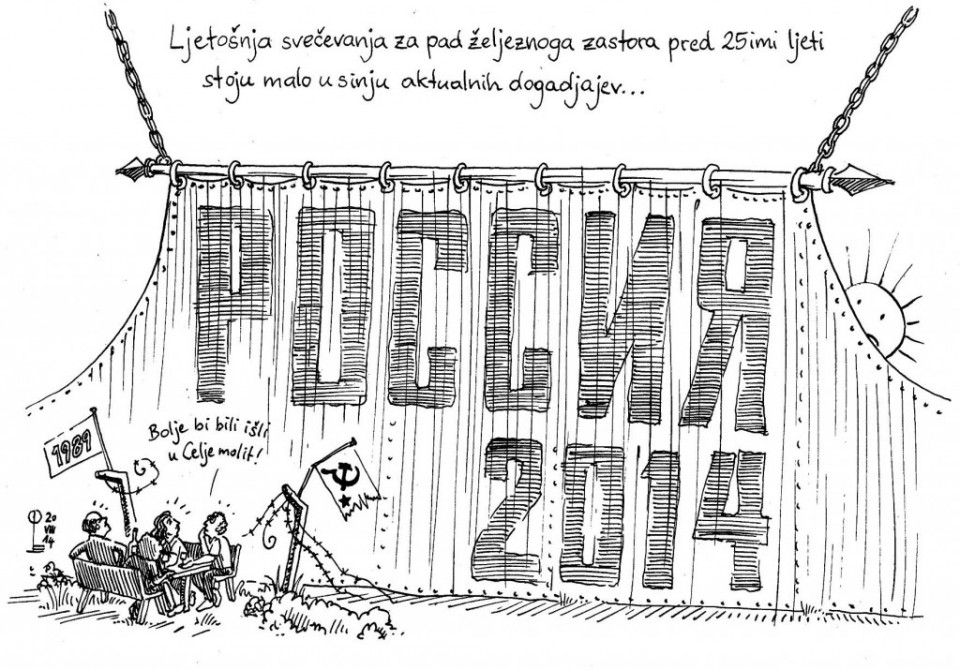 Ljetošnja svečevanja za pad željeznoga zastora pred 25imi ljeti
stoju malo u sinju aktualnih dogadjajev...
РОССИЯ
2014
1989
Bolje bi bili išli
u Celje molit!
20
VIII
14